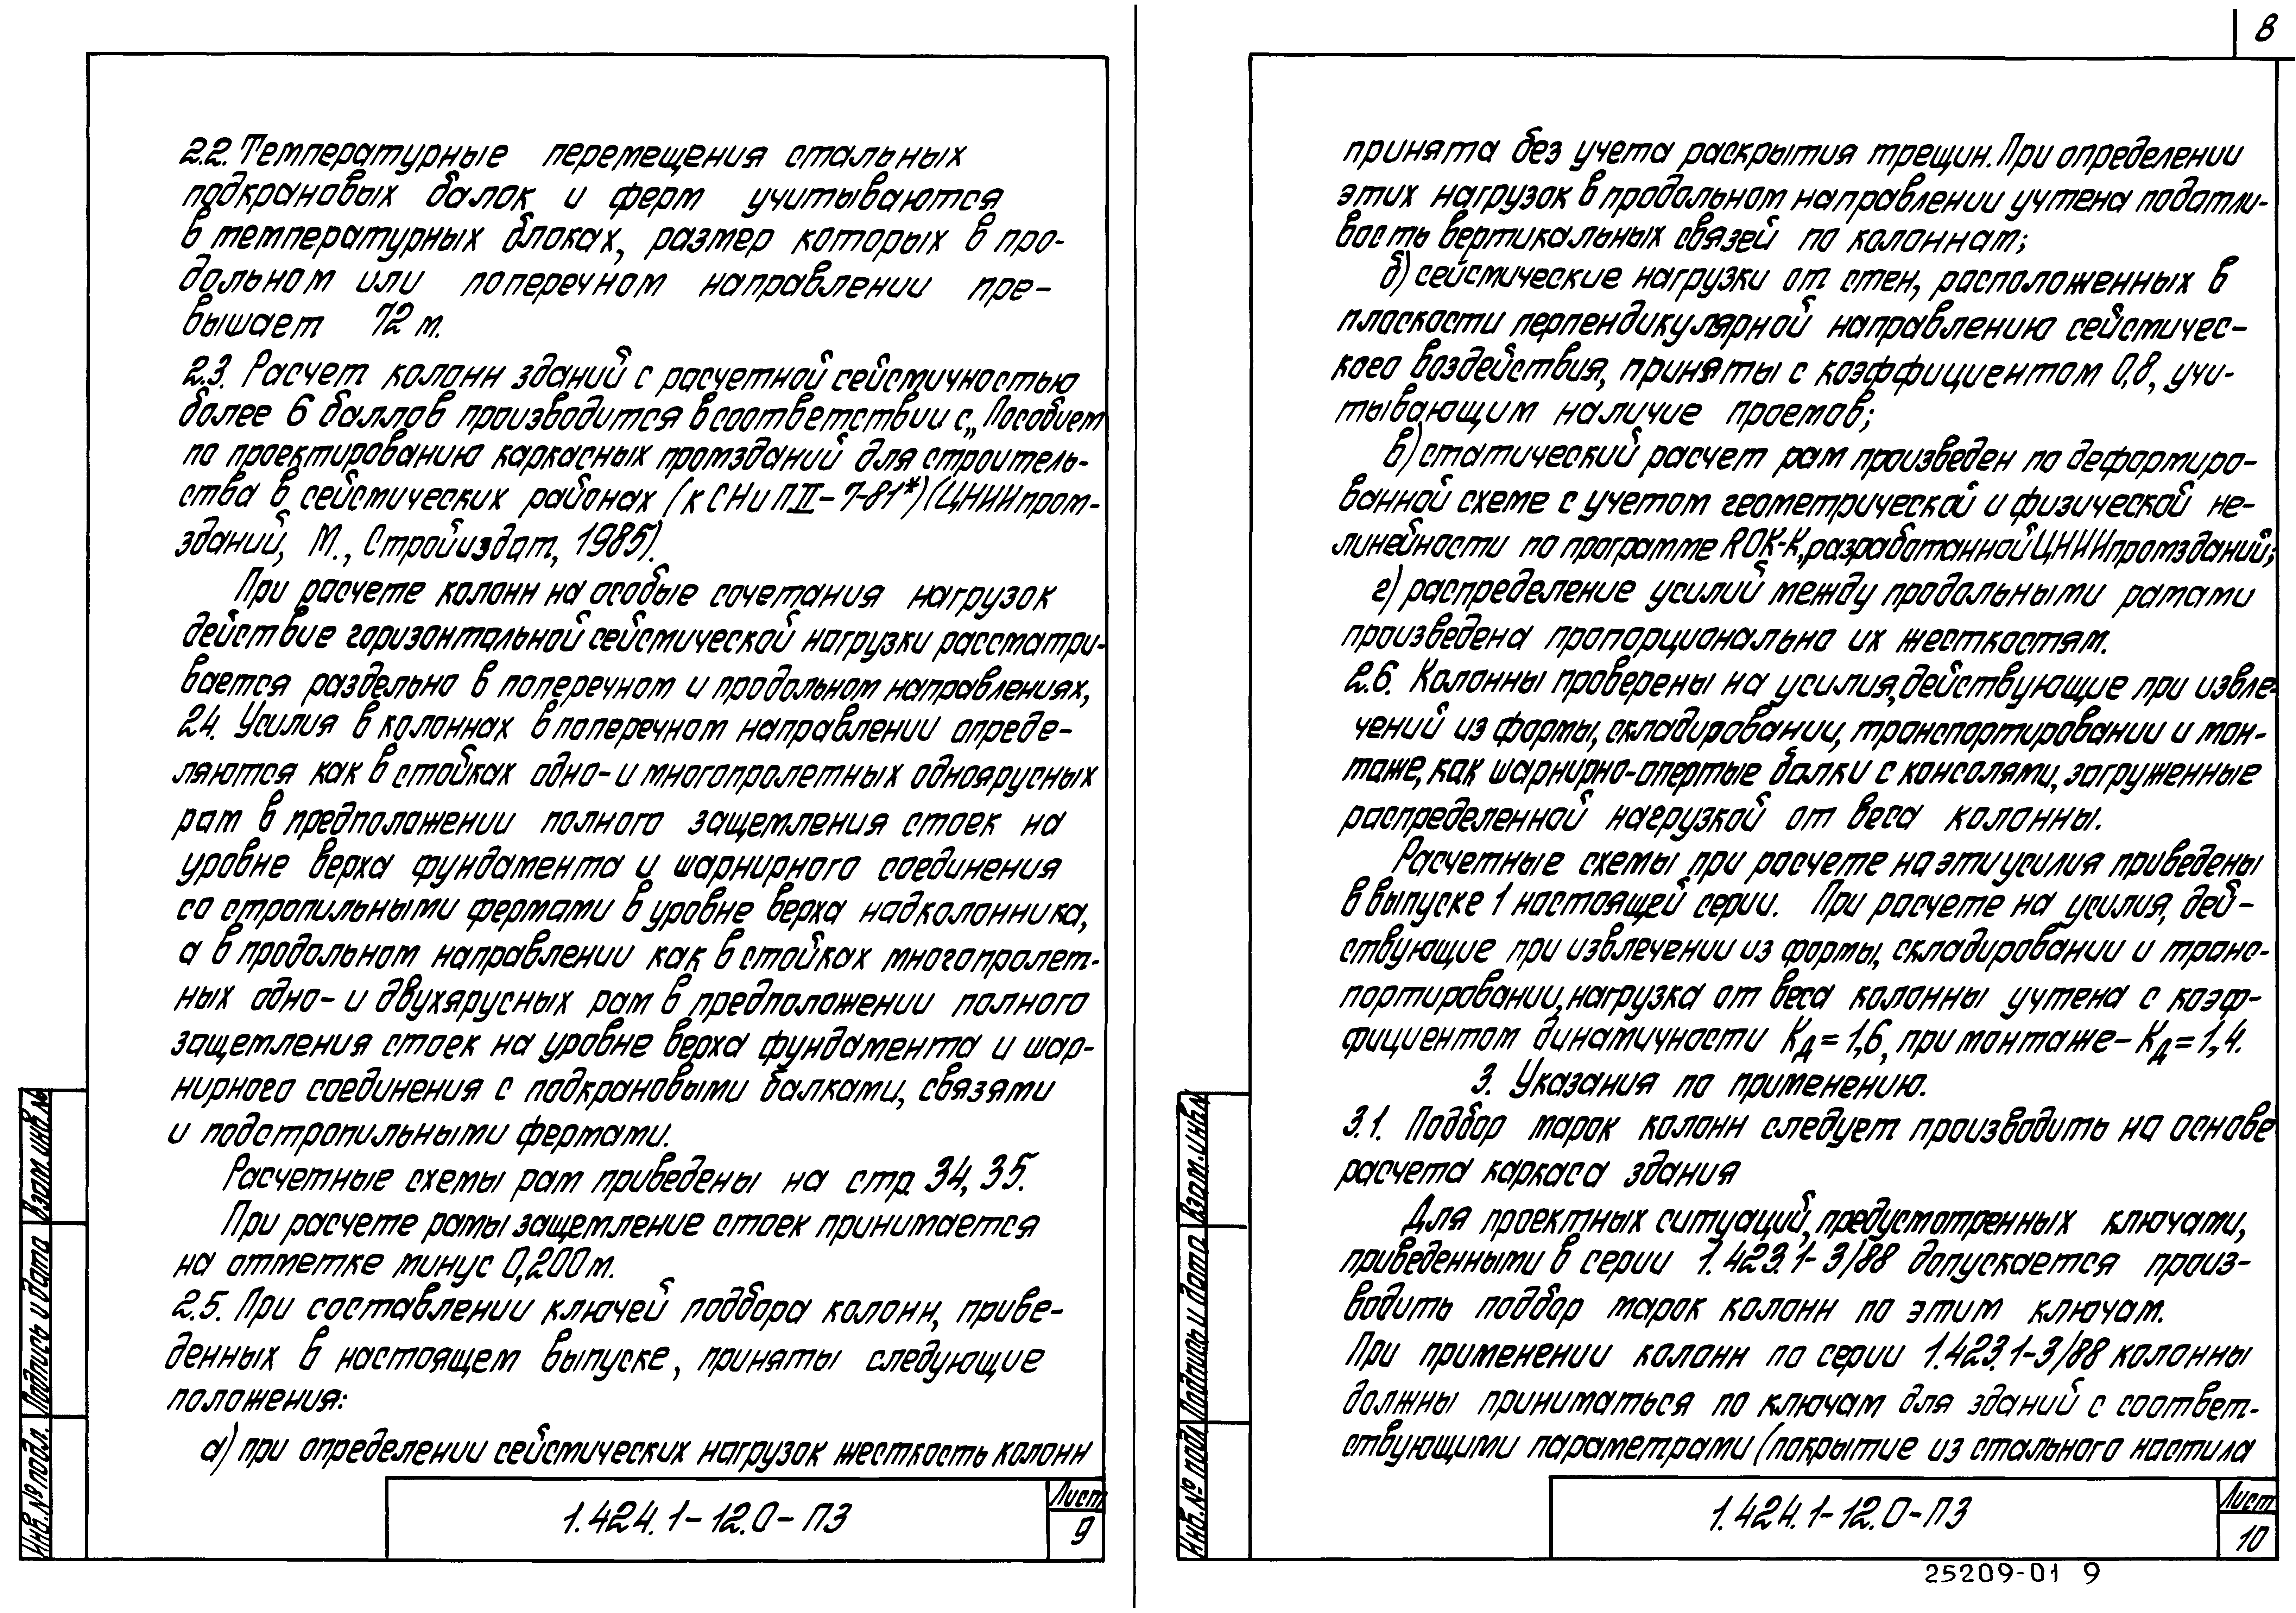 8
2.2. Температурные перемещения стальных
подкрановых балок и ферм учитываются
в температурных блоках, размер которых в про-
дольном или поперечном направлении пре-
вышает 72 м.
2.3. Расчет колонн зданий с расчетной сейсмичностью
более 6 баллов производится в соответствии с „Пособием
по проектированию каркасных промзданий для строитель-
ства в сейсмических районах (к СНиП II-7-81*) (ЦНИИпром-
зданий, М., Стройиздат, 1985).
При расчете колонн на особые сочетания нагрузок
действие горизонтальной сейсмической нагрузки рассматри-
вается раздельно в поперечном и продольном направлениях,
2.4. Усилия в колоннах в поперечном направлении опреде-
ляются как в стойках одно- и многопролетных одноярусных
рам в предположении полного защемления стоек на
уровне верха фундамента и шарнирного соединения
со стропильными фермами в уровне верха надколонника,
а в продольном направлении как в стойках многопролет-
ных одно- и двухярусных рам в предположении полного
защемления стоек на уровне верха фундамента и шар-
нирного соединения с подкрановыми балками, связями
и подстропильными фермами.
Расчетные схемы рам приведены на стр. 34, 35.
При расчете рамы защемление стоек принимается
на отметке минус 0,200 м.
2.5. При составлении ключей подбора колонн, приве-
денных в настоящем выпуске, приняты следующие
положения:
а) при определении сейсмических нагрузок жесткость колонн
1.424.1-12.0-ПЗ
Лист
9
Инв. № подл.
Подпись и дата
Взам. инв. №
принята без учета раскрытия трещин. При определении
этих нагрузок в продольном направлении учтена податли-
вость вертикальных связей по колоннам;
б) сейсмические нагрузки от стен, расположенных в
плоскости перпендикулярной направлению сейсмичес-
кого воздействия, приняты с коэффициентом 0,8, учи-
тывающим наличие проемов;
в) статический расчет рам произведен по деформиро-
ванной схеме с учетом геометрической и физической не-
линейности по программе ROK-K, разработанной ЦНИИпромзданий;
г) распределение усилий между продольными рамами
произведена пропорционально их жесткостям.
2.6. Колонны проверены на усилия, действующие при извле-
чений из формы, складировании, транспортировании и мон-
таже, как шарнирно-опертые балки с консолями, загруженные
распределенной нагрузкой от веса колонны.
Расчетные схемы при расчете на эти усилия приведены
в выпуске 1 настоящей серии. При расчете на усилия, дей-
ствующие при извлечении из формы, складировании и транс-
портировании, нагрузка от веса колонны учтена с коэф-
фициентом динамичности Kд = 1,6, при монтаже - Kд = 1,4.
3. Указания по применению.
3.1. Подбор марок колонн следует производить на основе
расчета каркаса здания
Для проектных ситуаций, предусмотренных ключами,
приведенными в серии 1.423.1-3/88 допускается произ-
водить подбор марок колонн по этим ключам.
При применении колонн по серии 1.423.1-3/88 колонны
должны приниматься по ключам для зданий с соответ-
ствующими параметрами (покрытие из стального настила
1.424.1-12.0-ПЗ
Лист
10
Инв. № подл
Подпись и дата
Взам. инв. №
25209-01 9